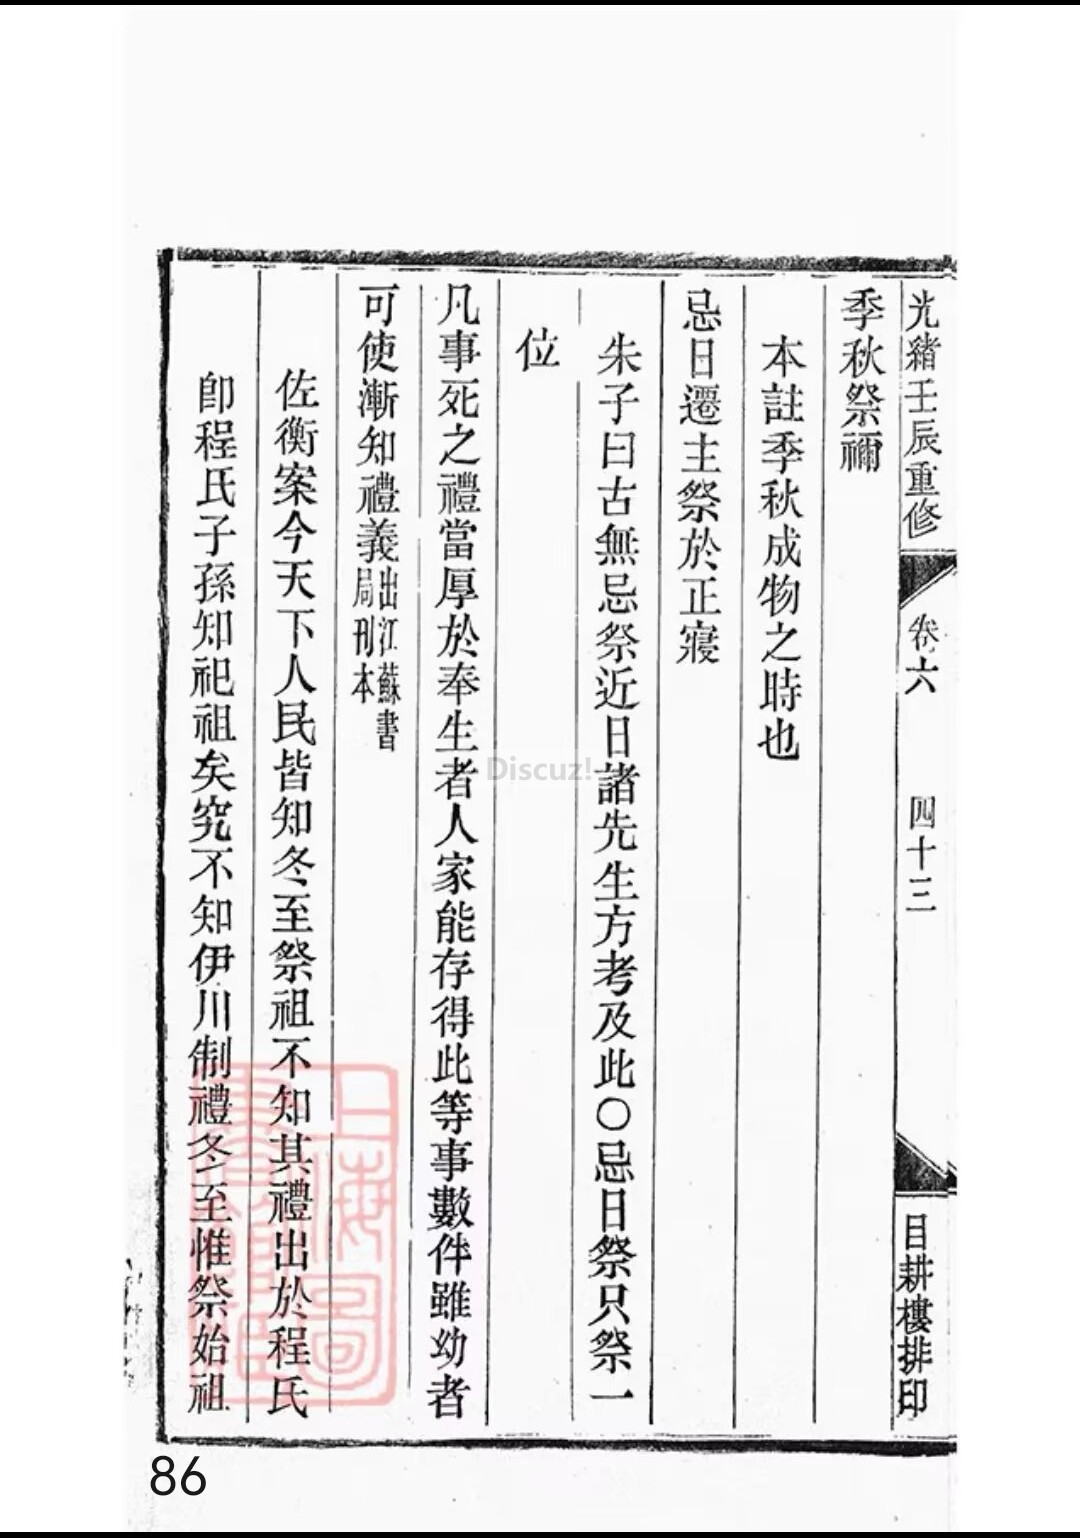 光緒壬辰重修
卷六
四十三
目耕樓排印
季秋祭禰
本註季秋成物之時也
忌日遷主祭於正寢
朱子曰古無忌祭近日諸先生方考及此〇忌日祭只祭一
位
凡事死之禮當厚於奉生者人家能存得此等事數件雖幼者
可使漸知禮義出江蘇書
局刊本
佐衡案今天下人民皆知冬至祭祖不知其禮出於程氏
卽程氏子孫知祀祖矣究不知伊川制禮冬至惟祭始祖
上海圖
書館藏
Discuz!
86